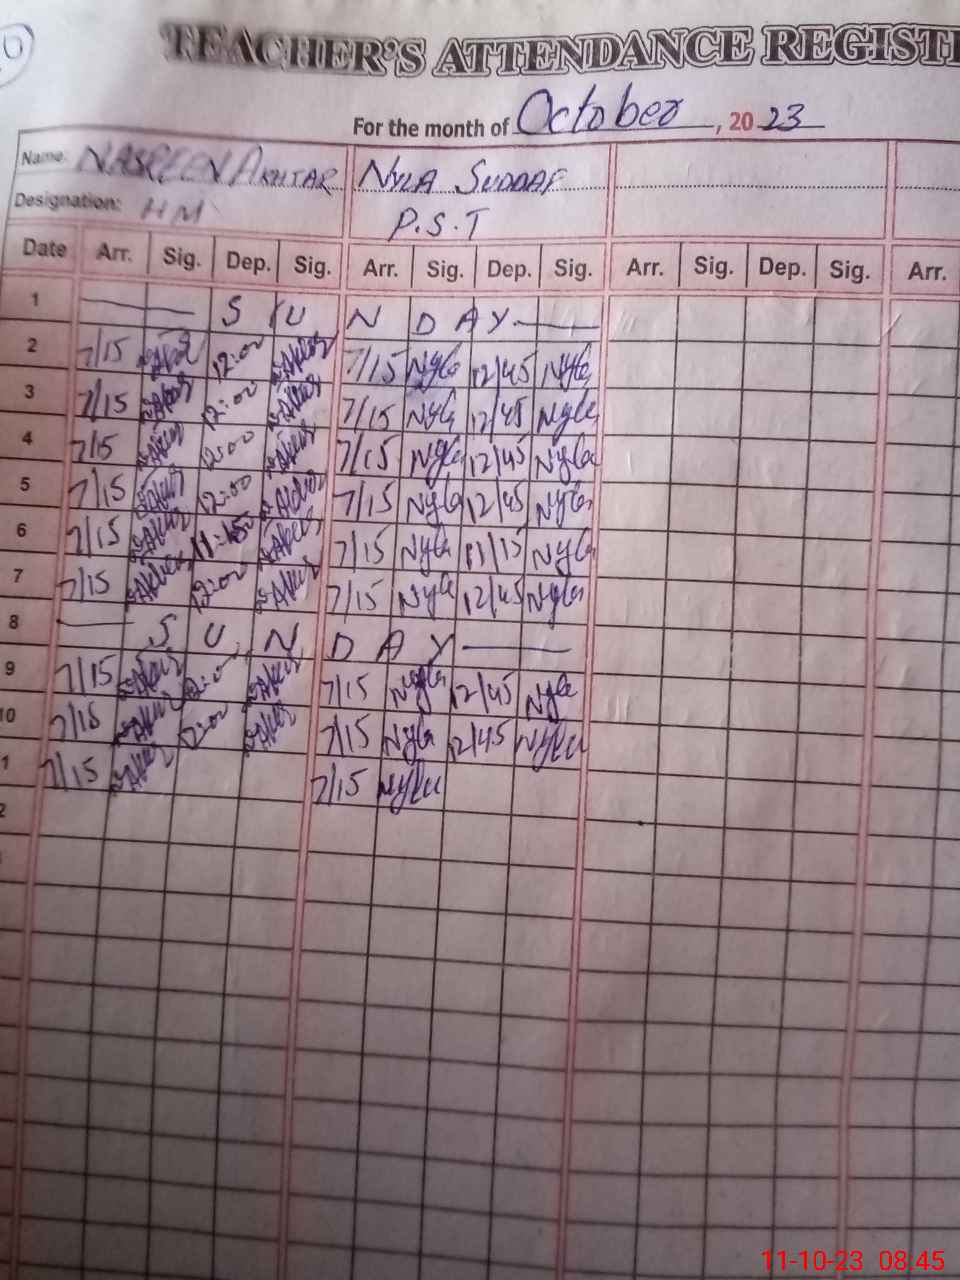 TEACHER'S ATTENDANCE REGIST
For the month of October, 2023
Name: NASREEN AKHTAR NYLA SUDDAF
Designation: HM P.S.T
Date Arr. Sig. Dep. Sig. Arr. Sig. Dep. Sig. Arr. Sig. Dep. Sig. Arr.
1 S U N D A Y
2 7/15 12:00 7/15 Nyla 12/45 Nyla
3 7/15 12:00 7/15 Nyla 12/45 Nyla
4 7/15 12:00 7/15 Nyla 12/45 Nyla
5 7/15 12:00 7/15 Nyla 12/45 Nyla
6 7/15 7/15 Nyla 11/15 Nyla
7 7/15 12:00 7/15 Nyla 12/45 Nyla
8 S U N D A Y
9 7/15 7/15 Nyla 12/45 Nyla
10 7/15 12:00 7/15 Nyla 12/45 Nyla
1 7/15 7/15 Nyla
2
11-10-23 08:45